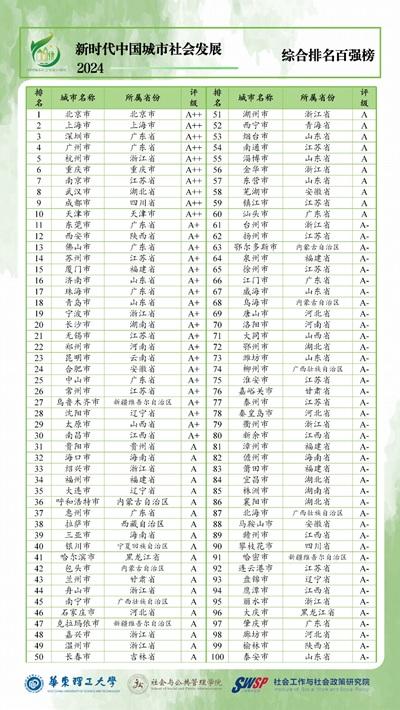 新时代中国城市社会发展
2024
综合排名百强榜
排名 城市名称 所属省份 评级 排名 城市名称 所属省份 评级
1 北京市 北京市 A++ 51 湖州市 浙江省 A
2 上海市 上海市 A++ 52 西宁市 青海省 A
3 深圳市 广东省 A++ 53 烟台市 山东省 A
4 广州市 广东省 A++ 54 南通市 江苏省 A
5 杭州市 浙江省 A++ 55 淄博市 山东省 A
6 重庆市 重庆市 A++ 56 金华市 浙江省 A
7 南京市 江苏省 A++ 57 东营市 山东省 A
8 武汉市 湖北省 A++ 58 芜湖市 安徽省 A
9 成都市 四川省 A++ 59 镇江市 江苏省 A
10 天津市 天津市 A++ 60 汕头市 广东省 A
11 东莞市 广东省 A+ 61 台州市 浙江省 A-
12 西安市 陕西省 A+ 62 扬州市 江苏省 A-
13 佛山市 广东省 A+ 63 鄂尔多斯市 内蒙古自治区 A-
14 苏州市 江苏省 A+ 64 泉州市 福建省 A-
15 厦门市 福建省 A+ 65 徐州市 江苏省 A-
16 济南市 山东省 A+ 66 江门市 广东省 A-
17 珠海市 广东省 A+ 67 威海市 山东省 A-
18 青岛市 山东省 A+ 68 乌海市 内蒙古自治区 A-
19 宁波市 浙江省 A+ 69 唐山市 河北省 A-
20 长沙市 湖南省 A+ 70 洛阳市 河南省 A-
21 无锡市 江苏省 A+ 71 大同市 山西省 A-
22 郑州市 河南省 A+ 72 鄂州市 湖北省 A-
23 昆明市 云南省 A+ 73 潍坊市 山东省 A-
24 合肥市 安徽省 A+ 74 柳州市 广西壮族自治区 A-
25 中山市 广东省 A+ 75 淮安市 江苏省 A-
26 常州市 江苏省 A+ 76 嘉峪关市 甘肃省 A-
27 乌鲁木齐市 新疆维吾尔自治区 A+ 77 泰州市 江苏省 A-
28 沈阳市 辽宁省 A+ 78 秦皇岛市 河北省 A-
29 太原市 山西省 A+ 79 衢州市 浙江省 A-
30 南昌市 江西省 A+ 80 新余市 江西省 A-
31 贵阳市 贵州省 A 81 漳州市 福建省 A-
32 海口市 海南省 A 82 儋州市 海南省 A-
33 绍兴市 浙江省 A 83 莆田市 福建省 A-
34 福州市 福建省 A 84 宜昌市 湖北省 A-
35 大连市 辽宁省 A 85 株洲市 湖南省 A-
36 呼和浩特市 内蒙古自治区 A 86 襄阳市 湖北省 A-
37 惠州市 广东省 A 87 北海市 广西壮族自治区 A-
38 拉萨市 西藏自治区 A 88 马鞍山市 安徽省 A-
39 三亚市 海南省 A 89 赣州市 江西省 A-
40 银川市 宁夏回族自治区 A 90 攀枝花市 四川省 A-
41 哈尔滨市 黑龙江省 A 91 哈密市 新疆维吾尔自治区 A-
42 包头市 内蒙古自治区 A 92 连云港市 江苏省 A-
43 兰州市 甘肃省 A 93 盘锦市 辽宁省 A-
44 舟山市 浙江省 A 94 鹰潭市 江西省 A-
45 南宁市 广西壮族自治区 A 95 丽水市 浙江省 A-
46 石家庄市 河北省 A 96 大庆市 黑龙江省 A-
47 克拉玛依市 新疆维吾尔自治区 A 97 肇庆市 广东省 A-
48 嘉兴市 浙江省 A 98 廊坊市 河北省 A-
49 温州市 浙江省 A 99 榆林市 陕西省 A-
50 长春市 吉林省 A 100 泰安市 山东省 A-
华东理工大学 社会与公共管理学院 SWSP 社会工作与社会政策研究院